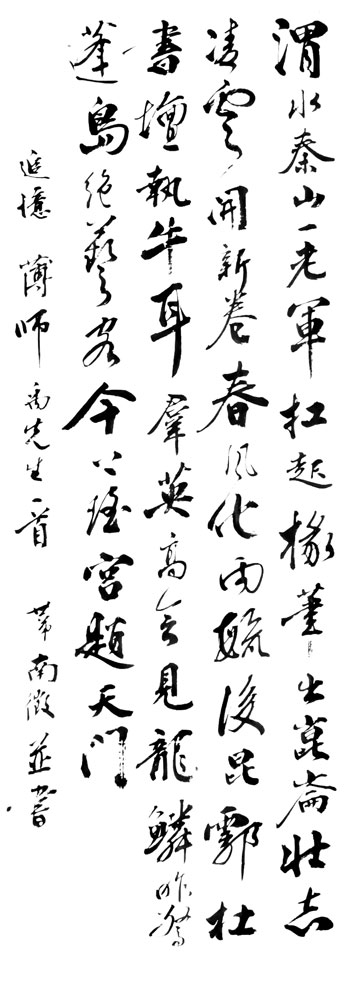 渭水秦山一老軍扛起椽筆出崑崙壯志
凌雲開新卷春風化雨毓後昆鄠杜
書壇執牛耳羣英高會見龍鱗昨驚
蓬島絶藝客今上瑤宮題天門
追憶 薄師禹先生一首 南徵並書